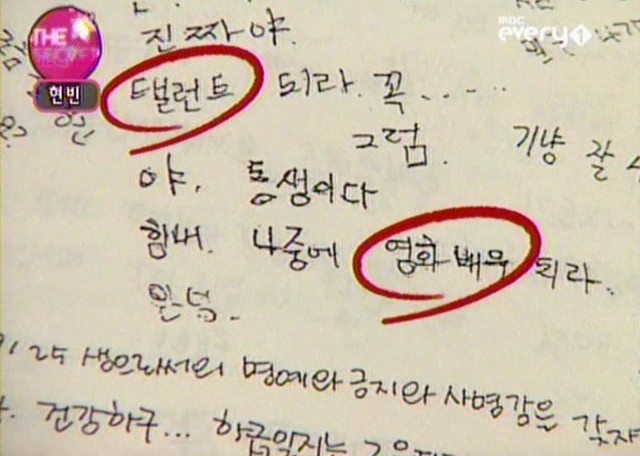 THE
SECRET
현빈
mbc
every1
진짜야.
탤런트 되라. 꼭.....
그럼.
기냥 잘
야. 동생이다
힘내. 나중에 영화배우 되라.
25 생으로서의 명예와 긍지와 사명감을 갖자
건강하구... 학급일지는